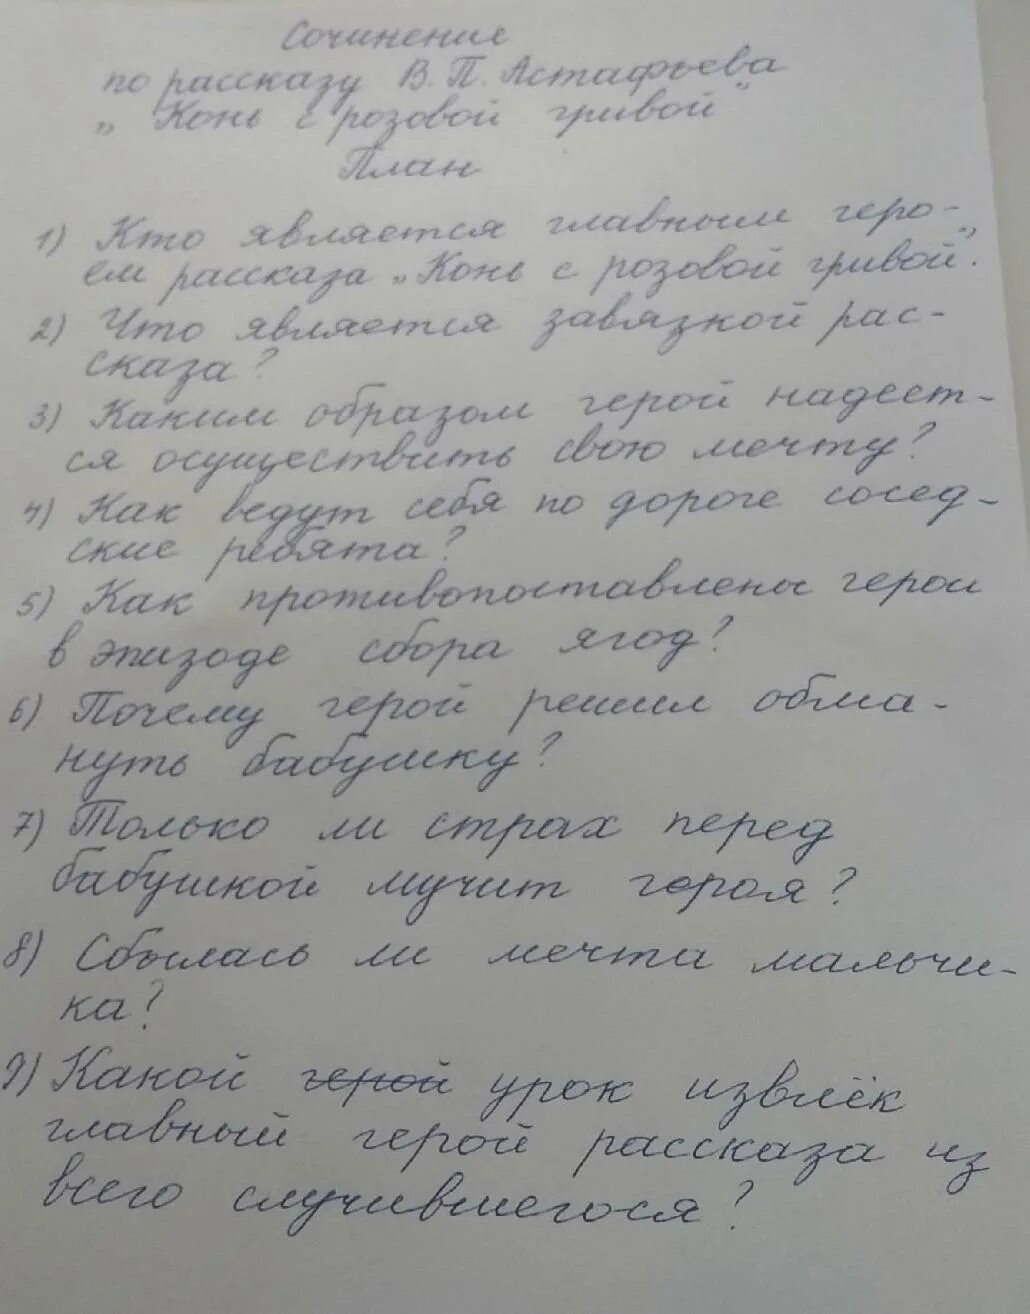 Сочинение
по рассказу В. П. Астафьева
„ Конь с розовой гривой"
План
1) Кто является главным геро-
ем рассказа „Конь с розовой гривой".
2) Что является завязкой рас-
сказа?
3) Каким образом герой надеет-
ся осуществить свою мечту?
4) Как ведут себя по дороге сосед-
ские ребята?
5) Как противопоставлены герои
в эпизоде сбора ягод?
6) Почему герой решил обма-
нуть бабушку?
7) Только ли страх перед
бабушкой мучит героя?
8) Сбылась ли мечта мальчи-
ка?
9) Какой герой урок извлёк
главный герой рассказа из
всего случившегося?